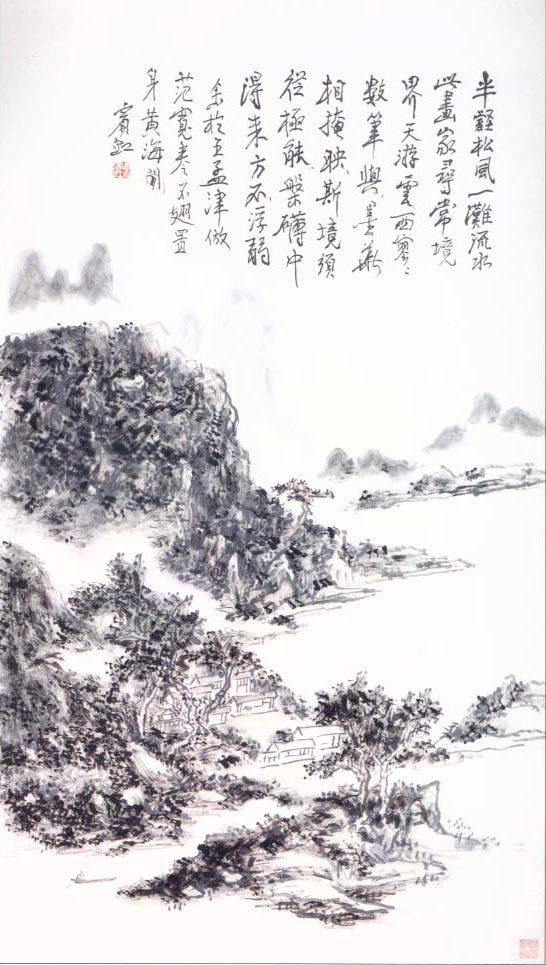 半壑松風一灘流水
此畫家尋常境
界天游雲西寥〻
數筆與墨華
相掩映斯境須
從極能槃礴中
得來方不浮弱
余於王孟津倣
范寬卷不翅置
身黃海間
賓虹